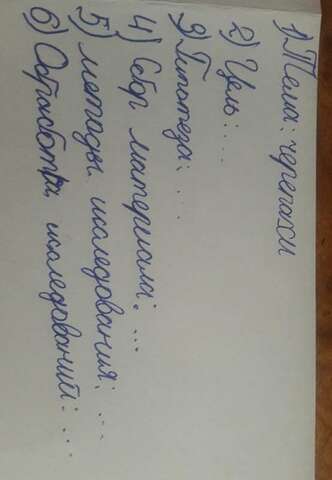 1) Тема: черепахи
2) Цель: ...
3) Гипотеза: ...
4) Сбор материала: ...
5) методы исследования: ...
6) Обработка исследований: ...